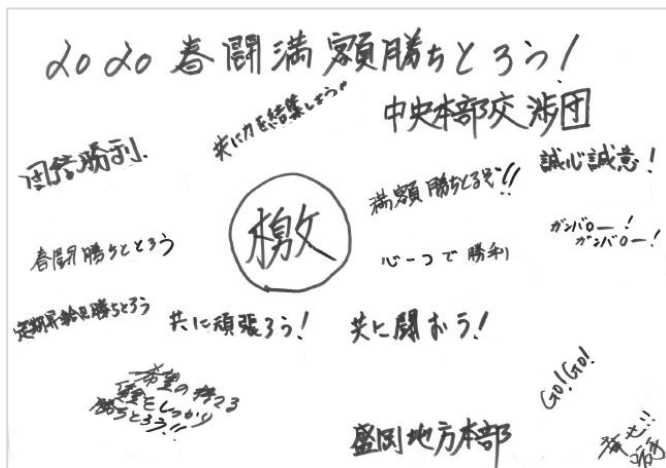 2020春闘満額勝ちとろう!
共に力を結集しよう
中央本部交渉団
団結勝利.
満額勝ちとるぞ!!
誠心誠意!
檄
春闘勝ちととろう
心一つで勝利
ガンバロー!
ガンバロー!
定期昇給勝ちとろう
共に頑張ろう!
共に闘おう!
希望の持てる
をしっかり
勝ちとろう!!
GO!GO!
盛岡地方本部